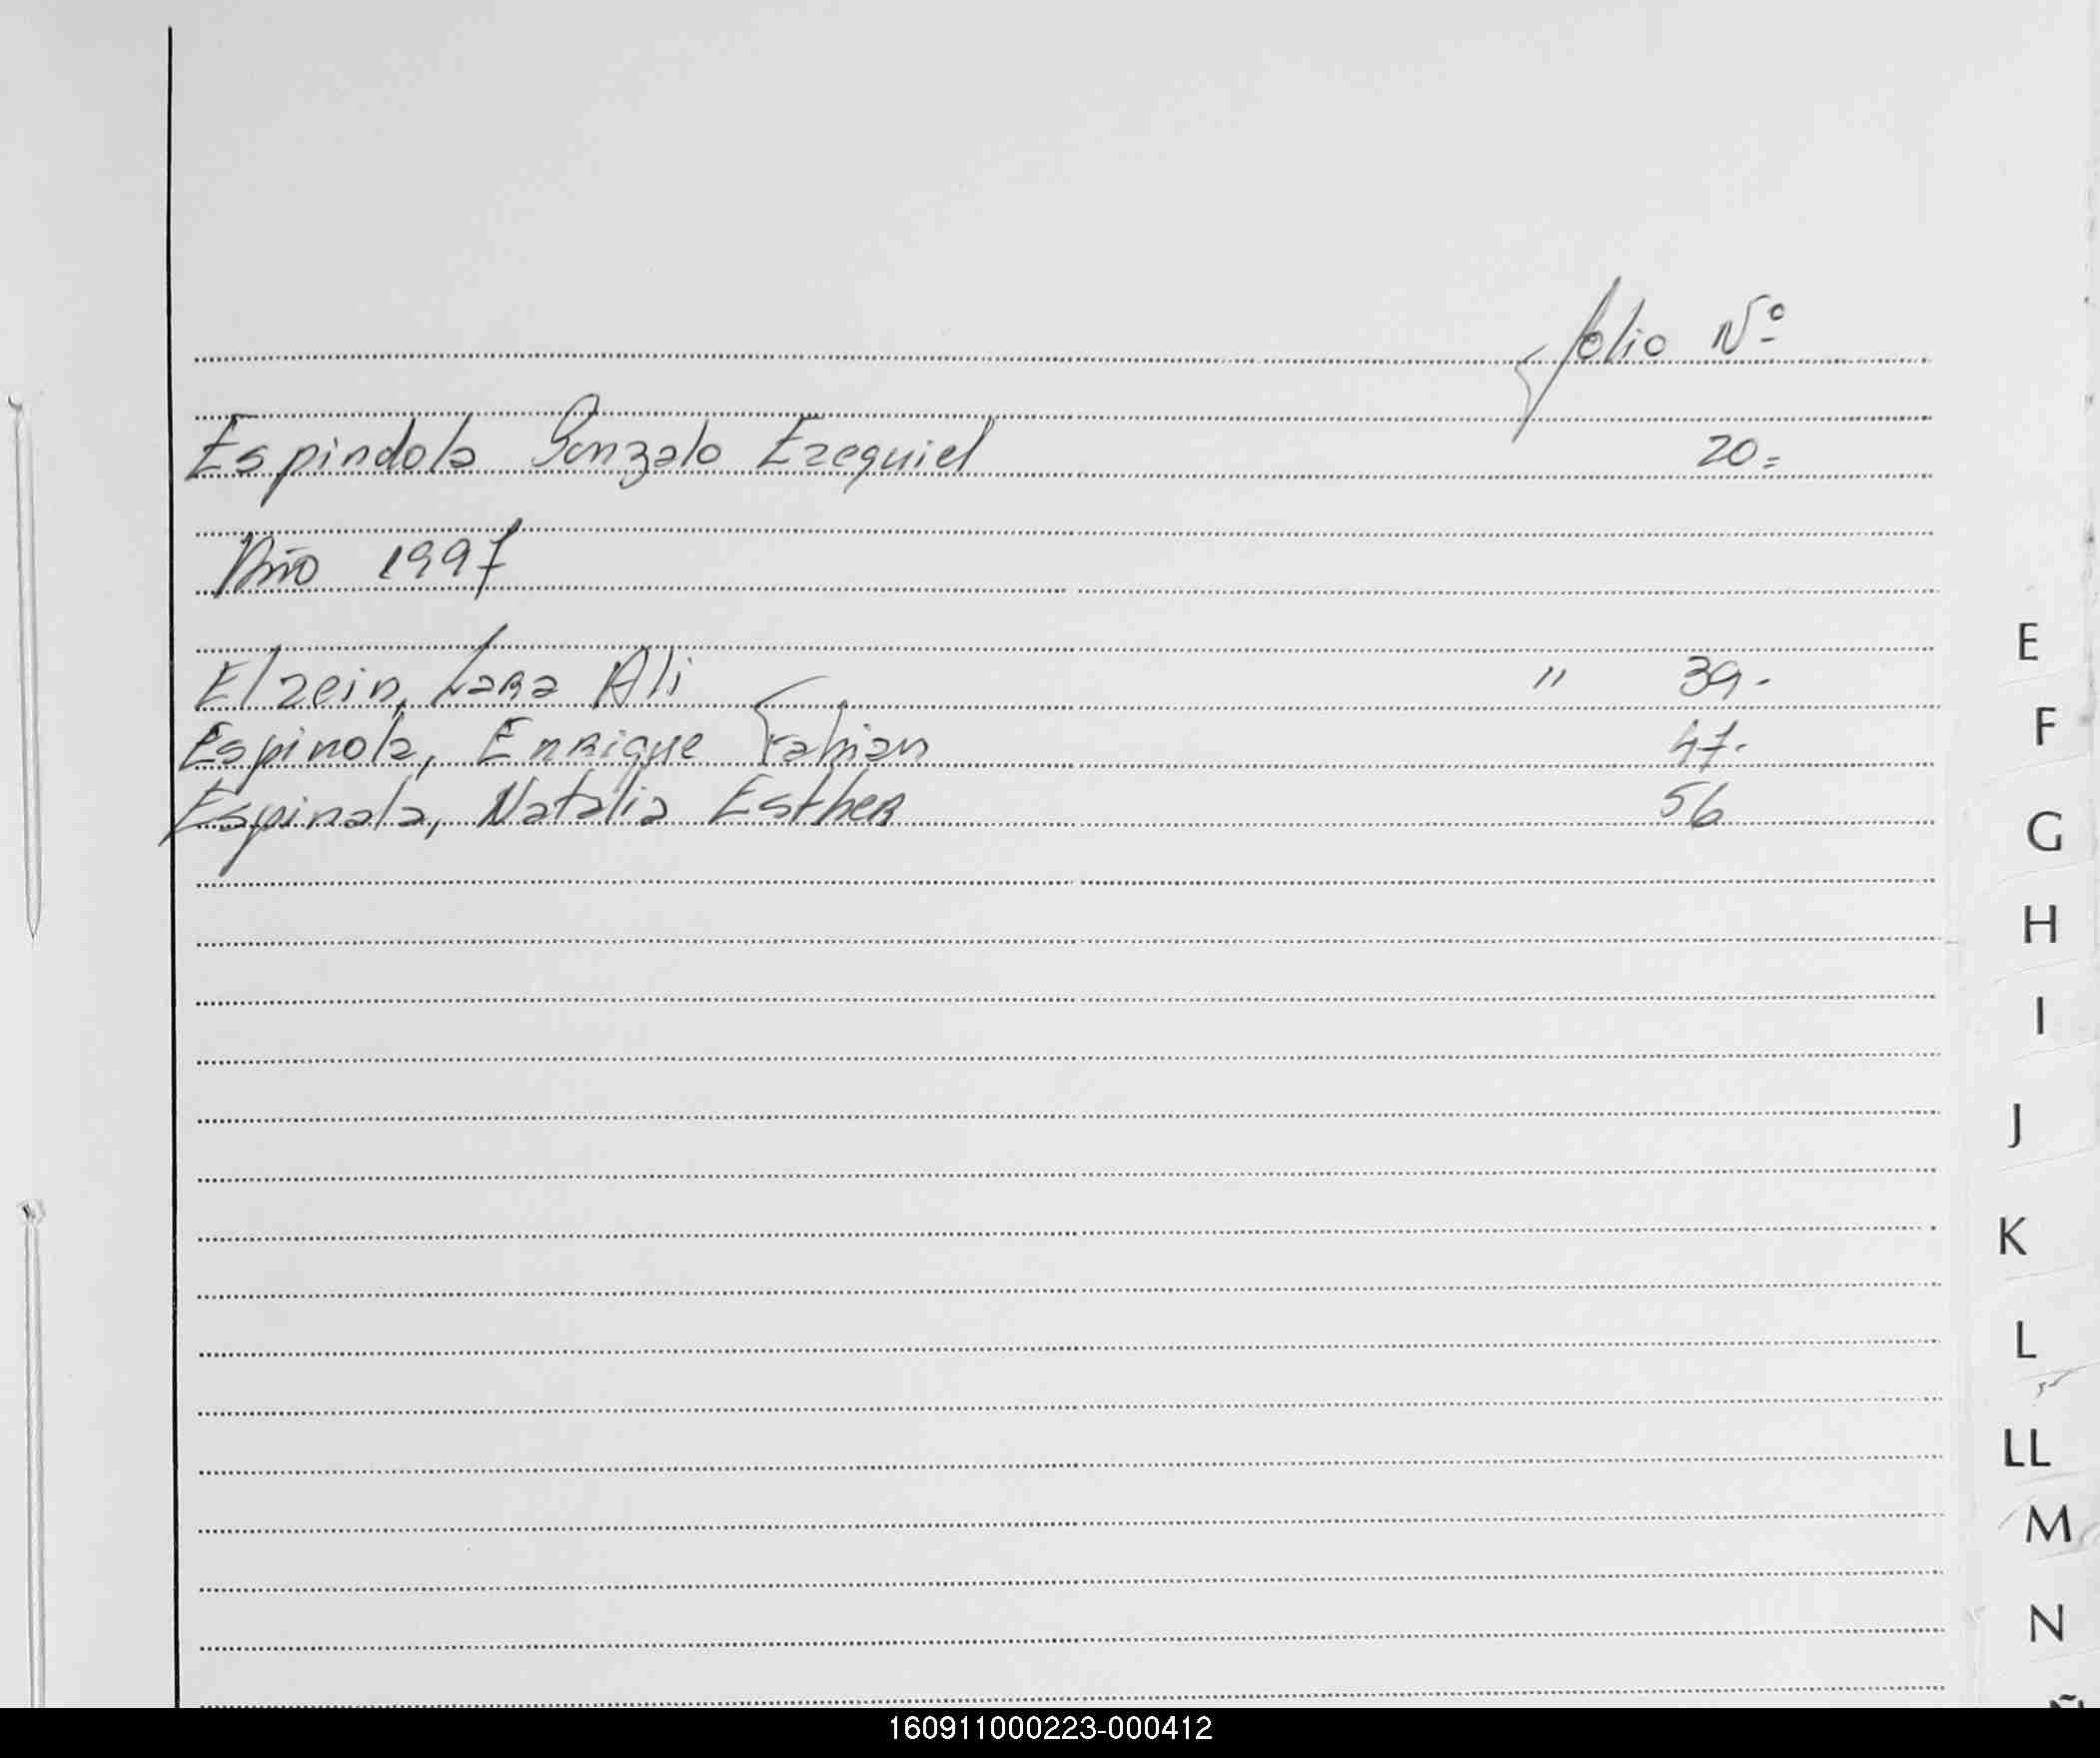 folio Nº
Espindola Gonzalo Ezequiel 20=
Año 1997
Elzein, Lara Ali " 39-
Espinola, Enrique Fabian 47-
Espinola, Natalia Esther 56
E
F
G
H
I
J
K
L
LL
M
N
Ñ
160911000223-000412